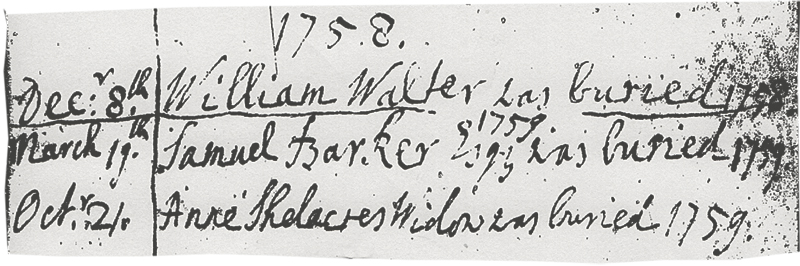 1758.
Dec:r 8.th William Walter was buried 1758
March 19.th Samuel Barker 1759 was buried 1759
Oct:r 21. Anne Shelacres Widow was buried 1759.